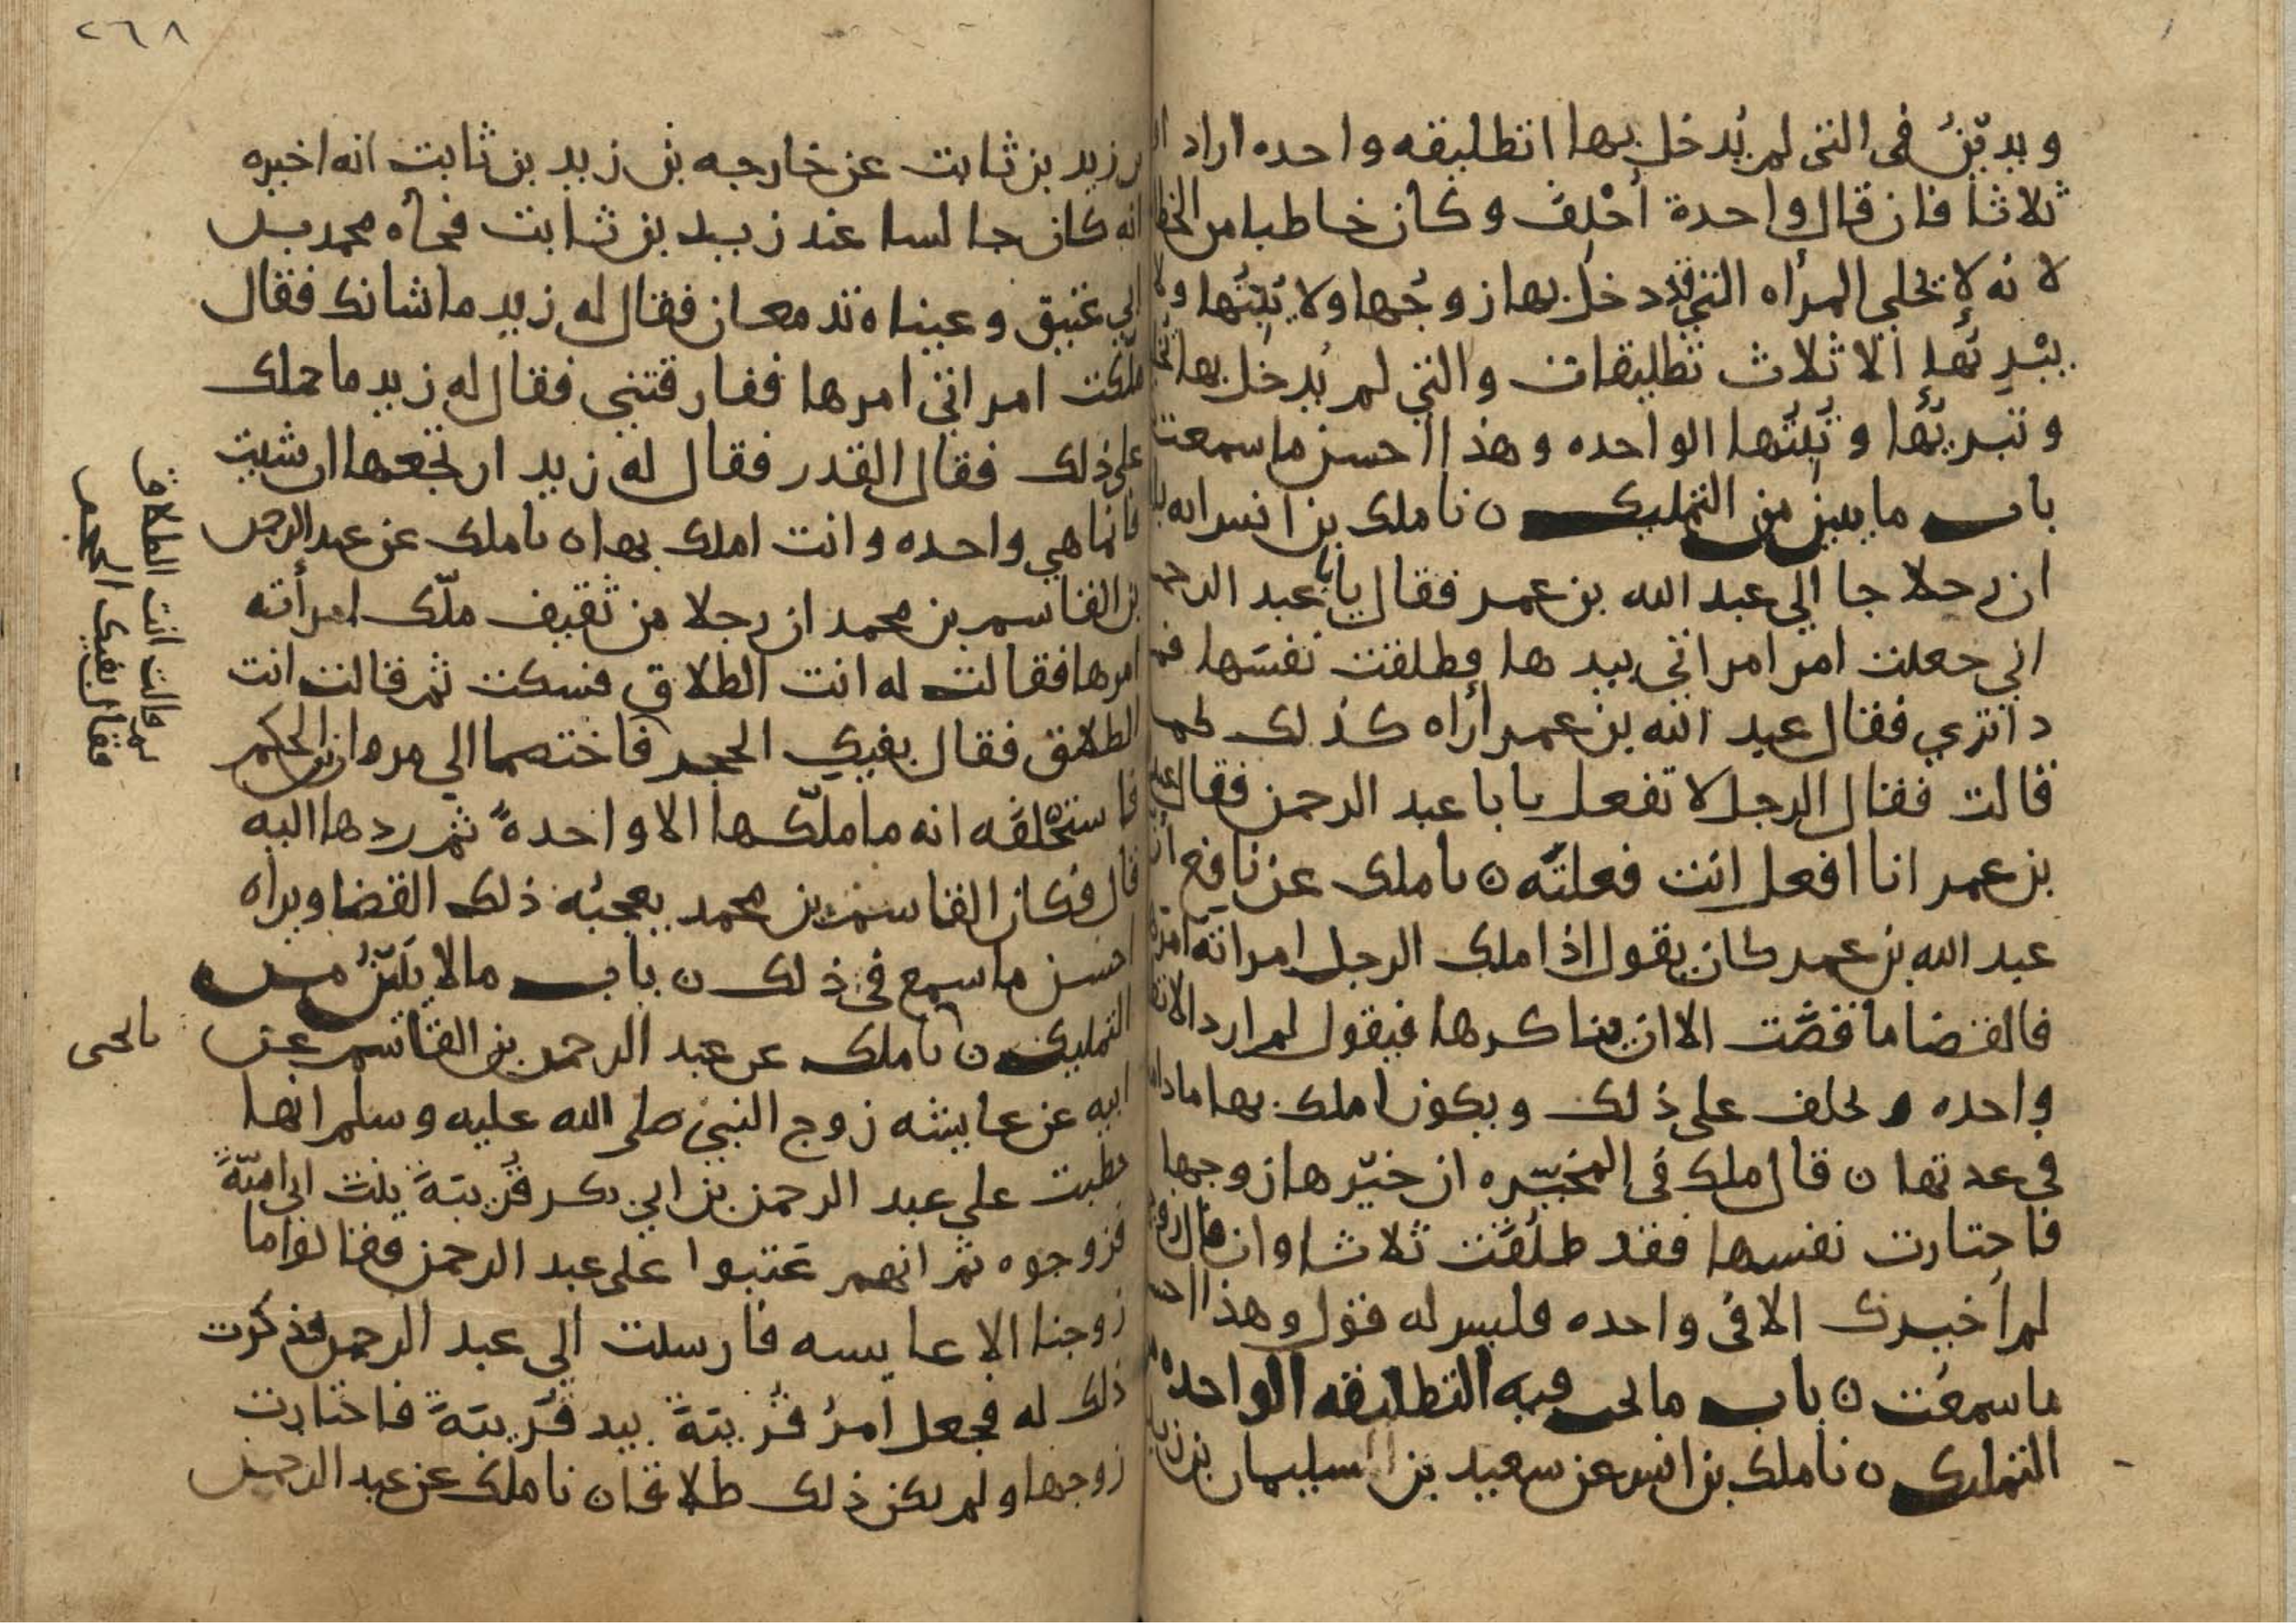 ويديّن في التي لم يُدخل بها اتطليقه واحده اراد
ثلاثا فان قال واحدة أُحْلِفَ وكان خاطبا من
لانه لا يخلي المرأه التي قد دخل بها زوجُها ولا يُبِتُها
يبْرِئها الا ثلاث تطليقات والتي لم يُدخل بها
وتبريها وتُبتُها الواحده وهذا احسن ما سمعت
باب ما يبين من التمليك ن نا ملك بن انس انه
ان رجلا جا الي عبد الله بن عمر فقال يابا عبد الرحمن
اني جعلت امر امراتي بيدها فطلقت نفسَها
ذا تري فقال عبد الله بن عمر أراه كذلك كما
قالت فقال الرجل لا تفعل يابا عبد الرحمن فقال
بن عمر انا افعل انت فعلتَه ن نا ملك عن نافع
عبد الله بن عمر كان يقول اذا ملك الرجل امراته
فالقضا ما قضَت الا ان يناكرها فيقول لم ارد الا
واحده و يحلف علي ذلك ويكون املك بها ما
في عدتها ن قال ملك في المخيّره ان خيّرها زوجها
فاختارت نفسها فقد طلُقَت ثلاثا وان قال
لم أخيرك الا في واحده فليس له قول وهذا
ما سمعت ن باب ما يجب فيه التطليقه الواحده
التمليك ن نا ملك بن انس عن سعيد بن سليمان بن
٢٦٨
زيد بن ثابت عن خارجه بن زيد بن ثابت انه اخبره
انه كان جالسا عند زيد بن ثابت فجاه محمد بن
ابي عتيق وعيناه تدمعان فقال له زيد ما شانك فقال
ملّكت امراتي امرها ففارقتني فقال له زيد ما حملك
علي ذلك فقال القدر فقال له زيد ارتجعها ان شيت
فانما هي واحده وانت املك بها ن نا ملك عن عبد الرحمن
بن القاسم بن محمد ان رجلا من ثقيف ملّك امرأته
امرها فقالت له انت الطلاق فسكت ثم قالت انت
الطلاق فقال بفيك الحجر فاختصما الي مروان بن الحكم
فاستحْلفَه انه ما ملّكها الا واحدهً ثم ردها اليه
قال فكان القاسم بن محمد يعجبُه ذلك القضا ويراه
احسن ما سمع في ذلك ن باب ما لا يَبِيْنُ من
التمليك ن نا ملك عن عبد الرحمن بن القاسم عن
ابيه عن عايشه زوج النبي صلي الله عليه وسلم انها
خطبت علي عبد الرحمن بن ابي بكر قُريبَةَ بنت ابي اميّةَ
فزوجوه ثم انهم عَتبوا علي عبد الرحمن فقالوا ما
زوجنا الا عايسه فارسلت الي عبد الرحمن فذكرت
ذلك له فجعل امرُ قُريبَةَ بيد قُريبَةَ فاختارت
زوجها ولم يكن ذلك طلاقا ن نا ملك عن عبد الرحمن
ثم قالت انت الطلاق
فقال بفيك الحجر